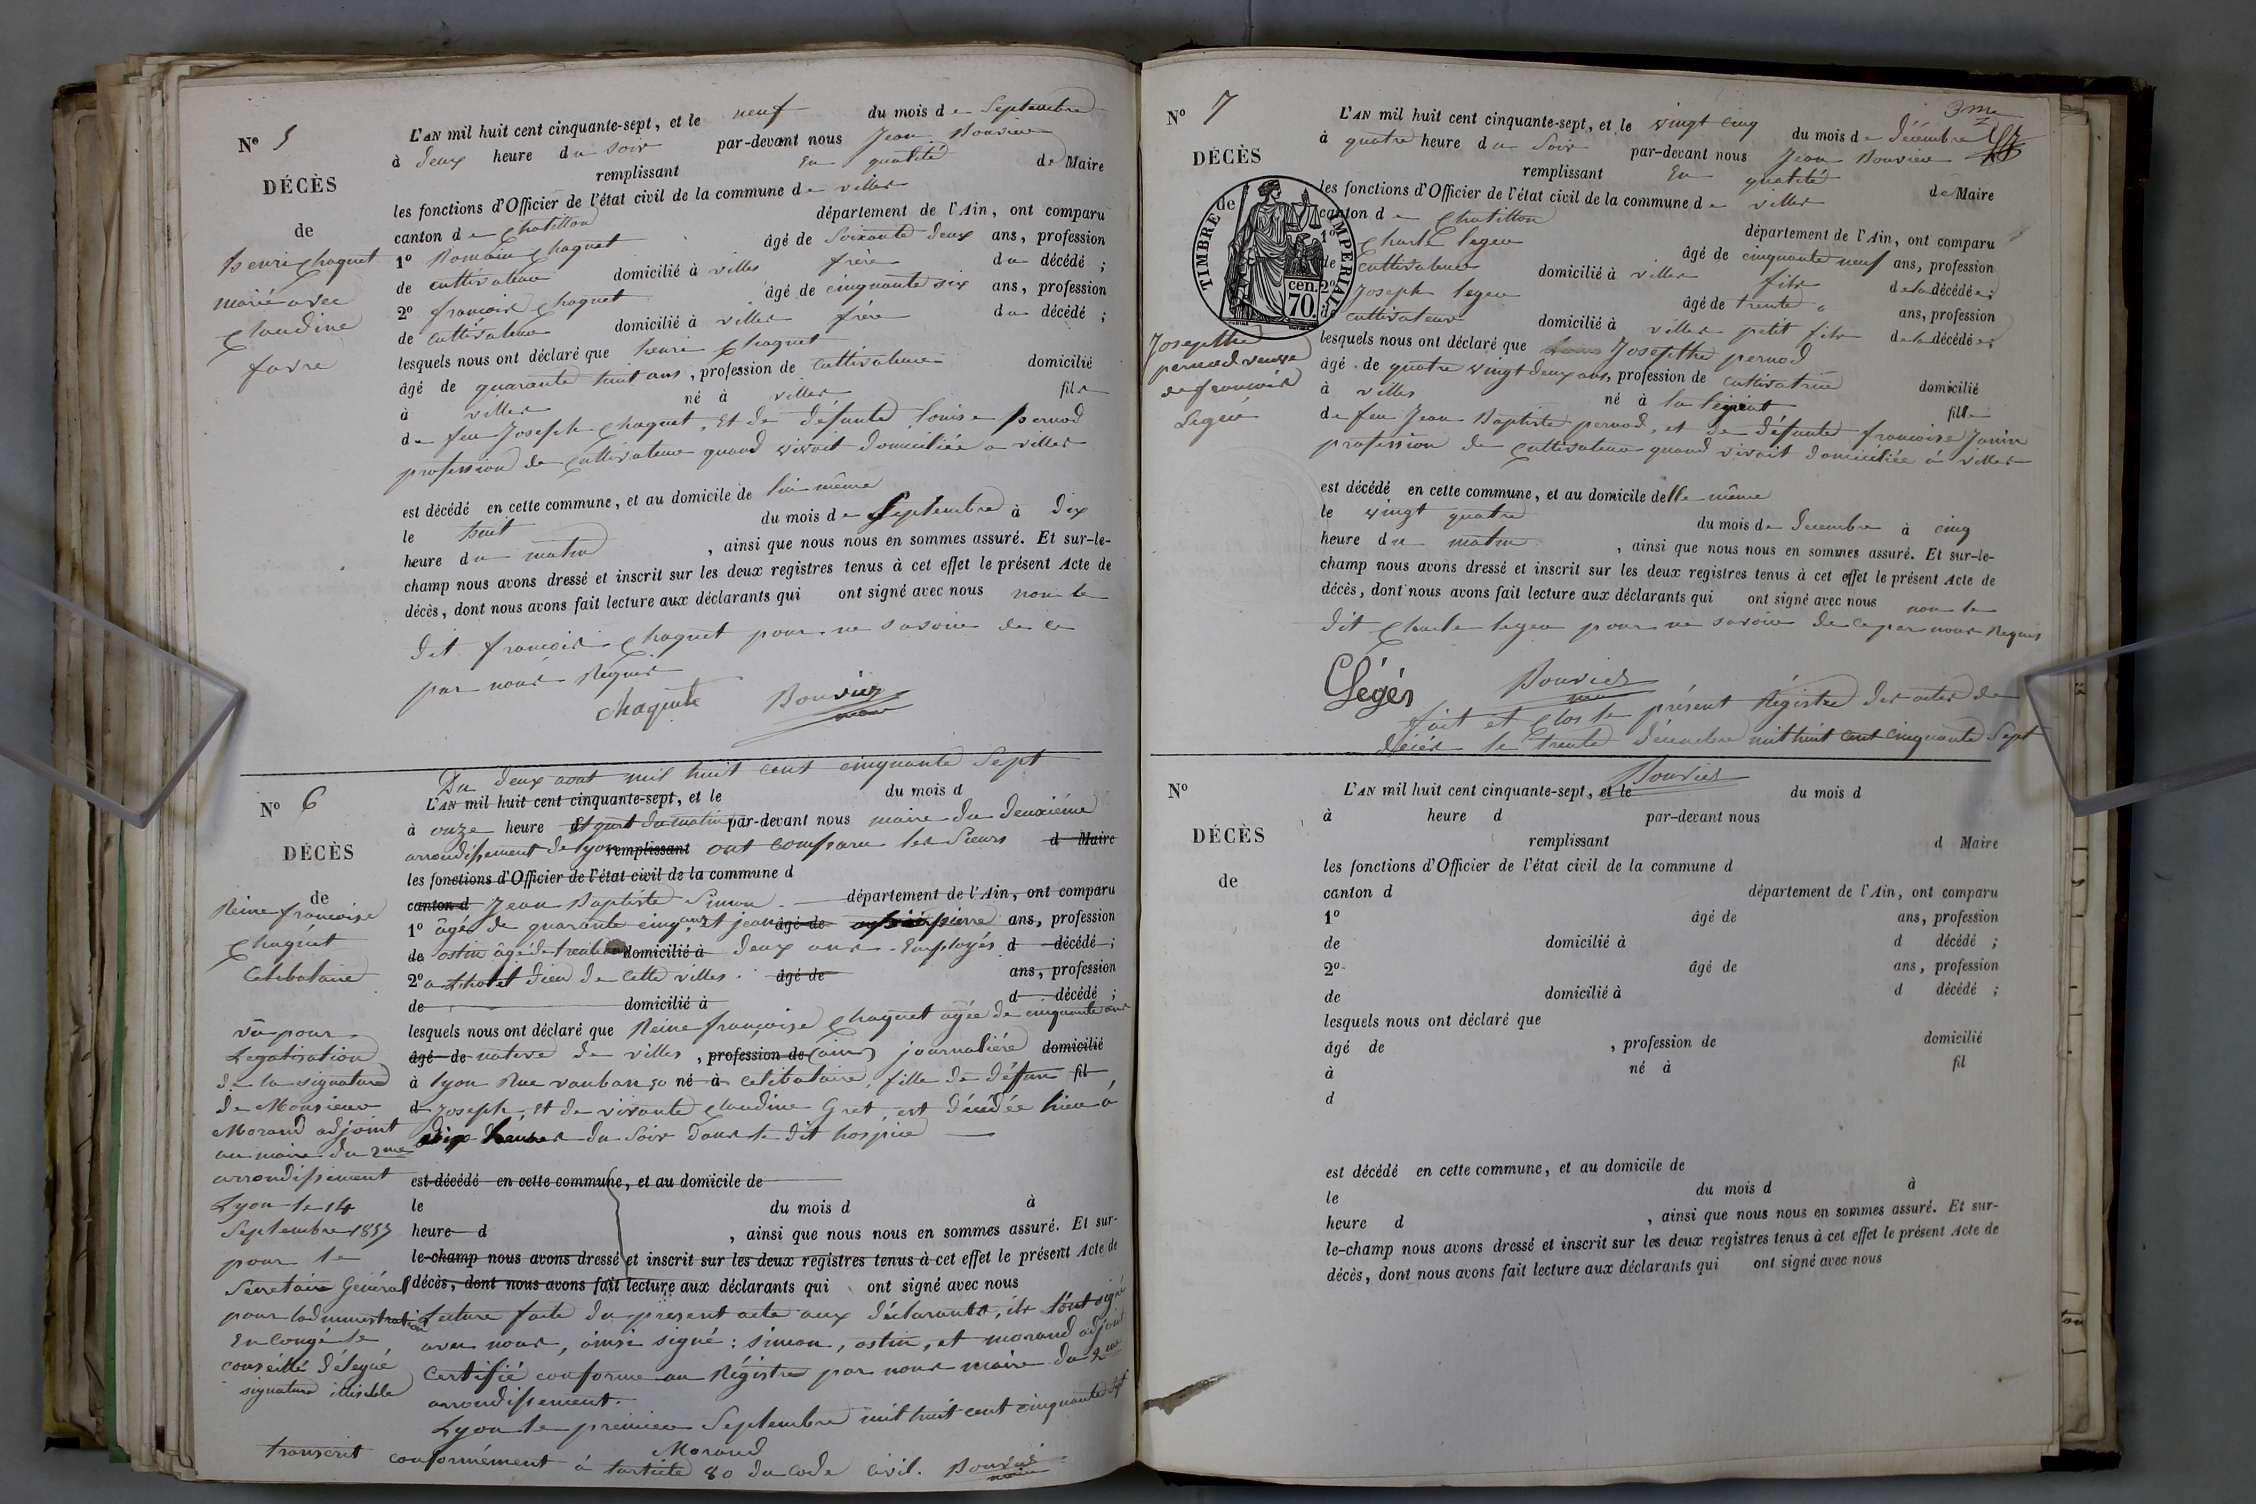 N° 5
DÉCÈS
de
henri Chaquet
marié avec
Claudine
favre
L'AN mil huit cent cinquante-sept, et le neuf du mois de Septembre
à deux heure du soir par-devant nous Jean Bouvier
remplissant En qualité de Maire
les fonctions d'Officier de l'état civil de la commune de villes
canton de Chatillon département de l'Ain, ont comparu
1° Romain Chaquet âgé de Soixante deux ans, profession
de cultivateur domicilié à villes frère du décédé ;
2° françois Chaquet âgé de cinquante six ans, profession
de cultivateur domicilié à villes frére du décédé ;
lesquels nous ont déclaré que henri Chaquet
âgé de quarante huit ans, profession de cultivateur domicilié
à villes né à villes fils
de feu Joseph Chaquet, Et de défunte louise pernod
profession de cultivateur quand vivait domiciliée a villes
est décédé en cette commune, et au domicile de lui même
le huit du mois de Septembre à dix
heure du matin, ainsi que nous nous en sommes assuré. Et sur-le-
champ nous avons dressé et inscrit sur les deux registres tenus à cet effet le présent Acte de
décès, dont nous avons fait lecture aux déclarants qui ont signé avec nous non le
dit françois Chaquet pour ne savoir de ce
par nous Requis
Chaquet Bouvier
maire
N° 6
DÉCÈS
de
Reine françoise
Chaquet
Celibataire
vu pour
Legalisation
de la signature
de Monsieur
Morand adjoint
au maire du 2me
arrondissement
Lyon le 14
Septembre 1857
pour le
Secretaire Général
pour l'administration
En Congé le
conseillé délegué
signature illisible
Du deux aout mil huit cent cinquante Sept
L'AN mil huit cent cinquante-sept, et le du mois d
à onze heure et quart du matin par-devant nous maire du deuxiéme
arrondissement de lyon remplissant ont comparu les Sieurs d Maire
les fonctions d'Officier de l'état civil de la commune d
canton d Jean Baptiste Simon département de l'Ain, ont comparu
1° âgé de quarante cinq ans, et jean âgé de pierre ans, profession
de ostin âgé de trente domicilié à deux ans Employés d décédé ;
2° a Lhotel dieu de Cette villes. âgé de ans, profession
de domicilié à d décédé ;
lesquels nous ont déclaré que Reine françoise Chaquet agée de cinquante ans
âgé de native de villes, profession de (ain) journaliére domicilié
à lyon Rue vauban 50 né à celibataire, fille de défun fil
d Joseph, Et de vivante Claudine Gret, est décédée hier á
dix heures du Soir dans le dit hospice
est décédé en cette commune, et au domicile de
le du mois d à
heure d, ainsi que nous nous en sommes assuré. Et sur-
le-champ nous avons dressé et inscrit sur les deux registres tenus à cet effet le présent Acte de
décès, dont nous avons fait lecture aux déclarants qui ont signé avec nous
Lecture faite du present acte aux déclarants, ils l'ont signé
avec nous, ainsi signé : simon, ostin, et morand adjoint
Certifié conforme au Régistre par nous maire du 2me
arrondissement.
Lyon le premier Septembre mil huit cent cinquante sept
Morand
transcrit conformément á larticle 80 du Code Civil. Bouvier
maire
3me
N° 7
DÉCÈS
de
TIMBRE IMPERIAL
70 cen.
Josephte
pernod veuve
de françois
Legeu
L'AN mil huit cent cinquante-sept, et le vingt cinq du mois de décembre
à quatre heure du Soir par-devant nous Jean Bouvier
remplissant En qualité de Maire
les fonctions d'Officier de l'état civil de la commune de villes
canton de Chatillon département de l'Ain, ont comparu
1° Charle legeu âgé de cinquante neuf ans, profession
de cultivateur domicilié à villes fils de la décédée ;
2° Joseph legeu âgé de trente ans, profession
de cultivateur domicilié à villes petit fils de la décédée ;
lesquels nous ont déclaré que Josephte pernod
âgé de quatre vingt deux ans, profession de cultivatrice domicilié
à villes né à fille
de feu Jean Baptiste pernod, et de défunte françoise Janin
profession de cultivateur quand vivait domiciliée á villes
est décédé en cette commune, et au domicile delle même
le vingt quatre du mois de decembre à cinq
heure du matin, ainsi que nous nous en sommes assuré. Et sur-le-
champ nous avons dressé et inscrit sur les deux registres tenus à cet effet le présent Acte de
décès, dont nous avons fait lecture aux déclarants qui ont signé avec nous non le
dit Charle legeu pour ne savoir de ce par nous Requis
Bouvier
fait et clos le présent Régistre des actes de
décés le trente décembre mil huit cent cinquante Sept
Bouvier
N°
DÉCÈS
de
L'AN mil huit cent cinquante-sept, et le du mois d
à heure d par-devant nous
remplissant d Maire
les fonctions d'Officier de l'état civil de la commune d
canton d département de l'Ain, ont comparu
1° âgé de ans, profession
de domicilié à d décédé ;
2° âgé de ans, profession
de domicilié à d décédé ;
lesquels nous ont déclaré que
âgé de , profession de domicilié
à né à fil
d
est décédé en cette commune, et au domicile de
le du mois d à
heure d , ainsi que nous nous en sommes assuré. Et sur-
le-champ nous avons dressé et inscrit sur les deux registres tenus à cet effet le présent Acte de
décès, dont nous avons fait lecture aux déclarants qui ont signé avec nous